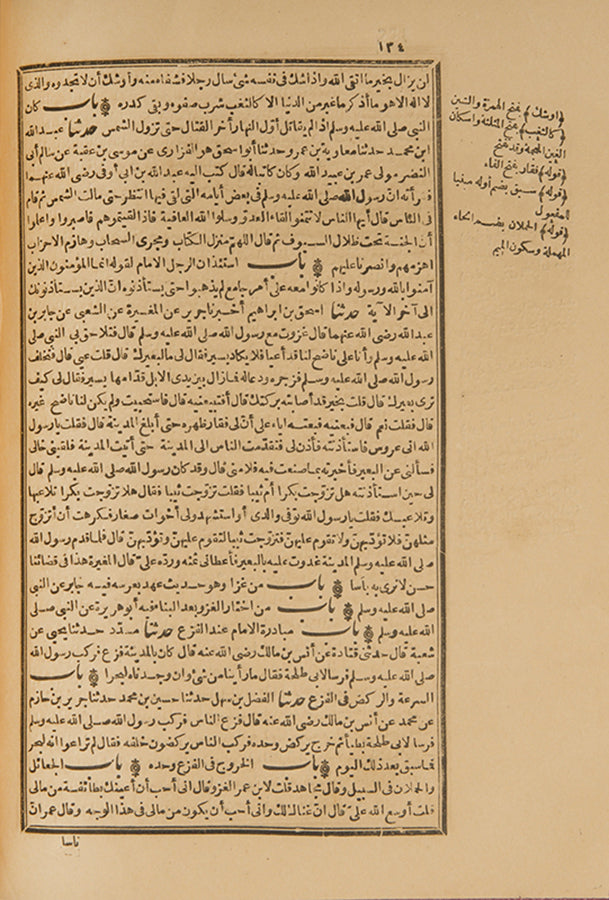 ١٣٤
ان يزال بخير ما اتقى الله واذا شك فى نفسه شئ سال رجلا فشفاه منه وأوشك أن لا تجدوه والذى
لا اله الا هو ما أذكر ما غبر من الدنيا الا كالثغب شرب صفوه وبقى كدره باب كان
النبى صلى الله عليه وسلم اذا لم يقاتل أول النهار أخر القتال حتى تزول الشمس حدثنا عبد الله
ابن محمد حدثنا معاوية بن عمرو حدثنا أبو اسحق هو الفزارى عن موسى بن عقبة عن سالم أبى
النضر مولى عمر بن عبيد الله وكان كاتبا له قال كتب اليه عبد الله بن ابى أوفى رضى الله عنهما
فقرأته انّ رسول الله صلى الله عليه وسلم فى بعض أيامه التى لقى فيها انتظر حتى مالت الشمس ثم قام
فى الناس قال أيها الناس لا تتمنوا لقاء العدو وسلوا الله العافية فاذا لقيتموهم فاصبروا واعلموا
أنّ الجنة تحت ظلال السيوف ثم قال اللهم منزل الكتاب ومجرى السحاب وهازم الاحزاب
اهزمهم وانصرنا عليهم باب استئذان الرجل الامام لقوله انما المؤمنون الذين
آمنوا بالله ورسوله واذا كانوا معه على أمر جامع لم يذهبوا حتى يستأذنوه انّ الذين يستأذنونك
الى آخر الآية حدثنا اسحق بن ابراهيم أخبرنا جرير عن المغيرة عن الشعبى عن جابر بن
عبد الله رضى الله عنهما قال غزوت مع رسول الله صلى الله عليه وسلم قال فتلاحق بى النبى صلى
الله عليه وسلم وأنا على ناضح لنا قد أعيا فلا يكاد يسير فقال لى ما لبعيرك قال قلت عيى قال فتخلف
رسول الله صلى الله عليه وسلم فزجره ودعا له فما زال بين يدى الابل قدّامها يسير فقال لى كيف
ترى بعيرك قال قلت بخير قد أصابته بركتك قال أفتبيعنيه قال فاستحييت ولم يكن لنا ناضح غيره
قال فقلت نعم قال فبعنيه فبعته اياه على أنّ لى فقار ظهره حتى أبلغ المدينة قال فقلت يا رسول
الله انى عروس فاستأذنته فأذن لى فتقدّمت الناس الى المدينة حتى أتيت المدينة فلقينى خالى
فسألنى عن البعير فأخبرته بما صنعت فيه فلامنى قال وقد كان رسول الله صلى الله عليه وسلم قال
لى حين استأذنته هل تزوّجت بكرا أم ثيبا فقلت تزوّجت ثيبا فقال هلا تزوّجت بكرا تلاعبها
وتلاعبك فقلت يا رسول الله توفى والدى أو استشهد ولى أخوات صغار فكرهت أن أتزوّج
مثلهنّ فلا تؤدّبهنّ ولا تقوم عليهنّ فتزوّجت ثيبا لتقوم عليهنّ وتؤدّبهنّ قال فلما قدم رسول الله
صلى الله عليه وسلم المدينة غدوت عليه بالبعير فأعطانى ثمنه وردّه علىّ قال المغيرة هذا فى قضائنا
حسن لا نرى به بأسا باب من غزا وهو حديث عهد بعرسه فيه جابر عن النبى
صلى الله عليه وسلم باب من اختار الغزو بعد البناء فيه أبو هريرة عن النبى صلى
الله عليه وسلم باب مبادرة الامام عند الفزع حدثنا مسدّد حدثنا يحيى عن
شعبة قال حدثنى قتادة عن أنس بن مالك رضى الله عنه قال كان بالمدينة فزع فركب رسول الله
صلى الله عليه وسلم فرسا لابى طلحة فقال ما رأينا من شئ وان وجدناه لبحرا باب
السرعة والركض فى الفزع حدثنا الفضل بن سهل حدثنا حسين بن محمد حدثنا جرير بن حازم
عن محمد عن أنس بن مالك رضى الله عنه قال فزع الناس فركب رسول الله صلى الله عليه وسلم
فرسا لابى طلحة بطيأ ثم خرج يركض وحده فركب الناس يركضون خلفه فقال لم تراعوا انه لبحر
فما سبق بعد ذلك اليوم باب الخروج فى الفزع وحده باب الجعائل
والحملان فى السبيل وقال مجاهد قلت لابن عمر الغزو قال انى أحب أن أعينك بطائفة من مالى
قلت أوسع الله علىّ قال انّ غناك لك وانى أحب أن يكون من مالى فى هذا الوجه وقال عمر انّ
ناسا
(اوشك) بفتح الهمزة والشين
(كالثغب) بفتح المثلثة واسكان
الغين المعجمة وقد تفتح
(قوله) فقار بفتح الفاء
(قوله) سبق بضم أوله مبنيا
للمفعول
(قوله) الحملان بضم الحاء
المهملة وسكون الميم